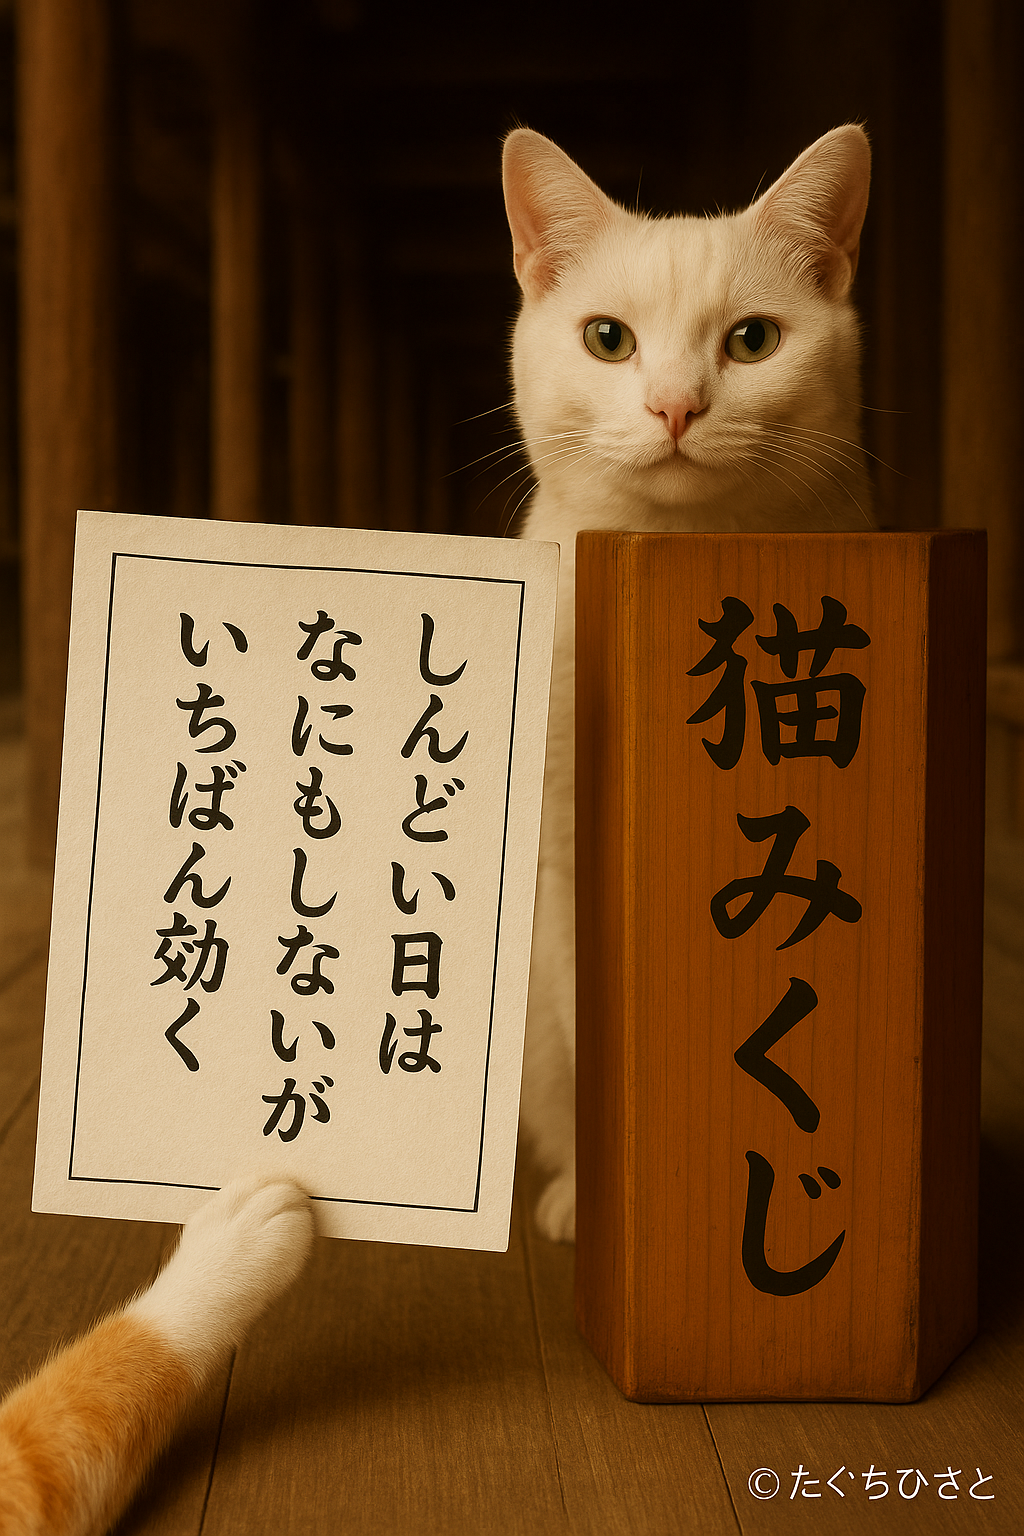 しんどい日は
なにもしないが
いちばん効く
猫みくじ
© たぐちひさと